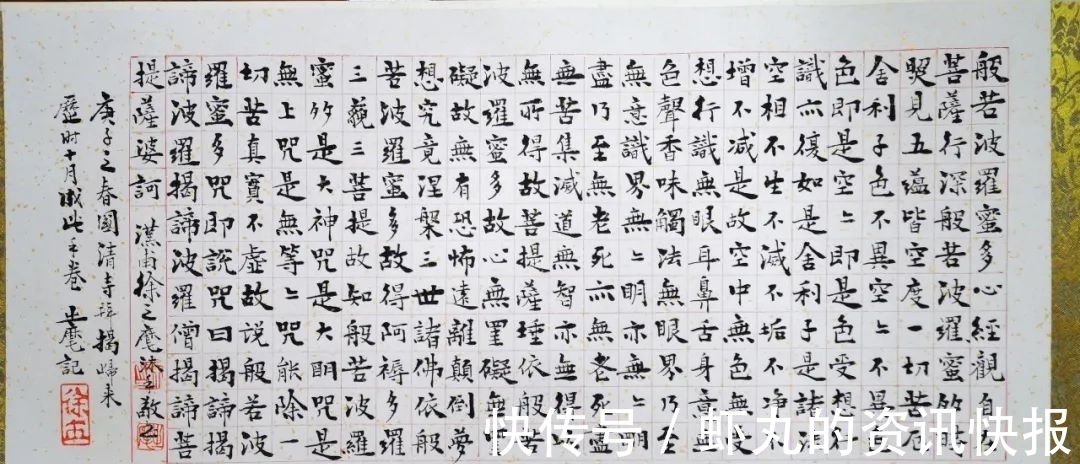 般若波羅蜜多心經觀自在
菩薩行深般若波羅蜜多時
照見五蘊皆空度一切苦厄
舍利子色不異空〻不異色
色即是空〻即是色受想行
識亦復如是舍利子是諸法
空相不生不滅不垢不淨不
增不減是故空中無色無受
想行識無眼耳鼻舌身意無
色聲香味觸法無眼界乃至
無意識界無〻明亦無〻明
盡乃至無老死亦無老死盡
無苦集滅道無智亦無得
無所得故菩提薩埵依般若
波羅蜜多故心無罣礙無罣
礙故無有恐怖遠離顛倒夢
想究竟涅槃三世諸佛依般
若波羅蜜多故得阿耨多羅
三藐三菩提故知般若波羅
蜜多是大神咒是大明咒是
無上咒是無等〻咒能除一
切苦真實不虛故說般若波
羅蜜多咒即說咒曰揭諦揭
諦波羅揭諦波羅僧揭諦菩
提薩婆訶 徐之麾沐手敬
庚子之春國清寺拜揭歸來
歷时十月成此手卷 之麾記
快传号 / 虾丸的资讯快报